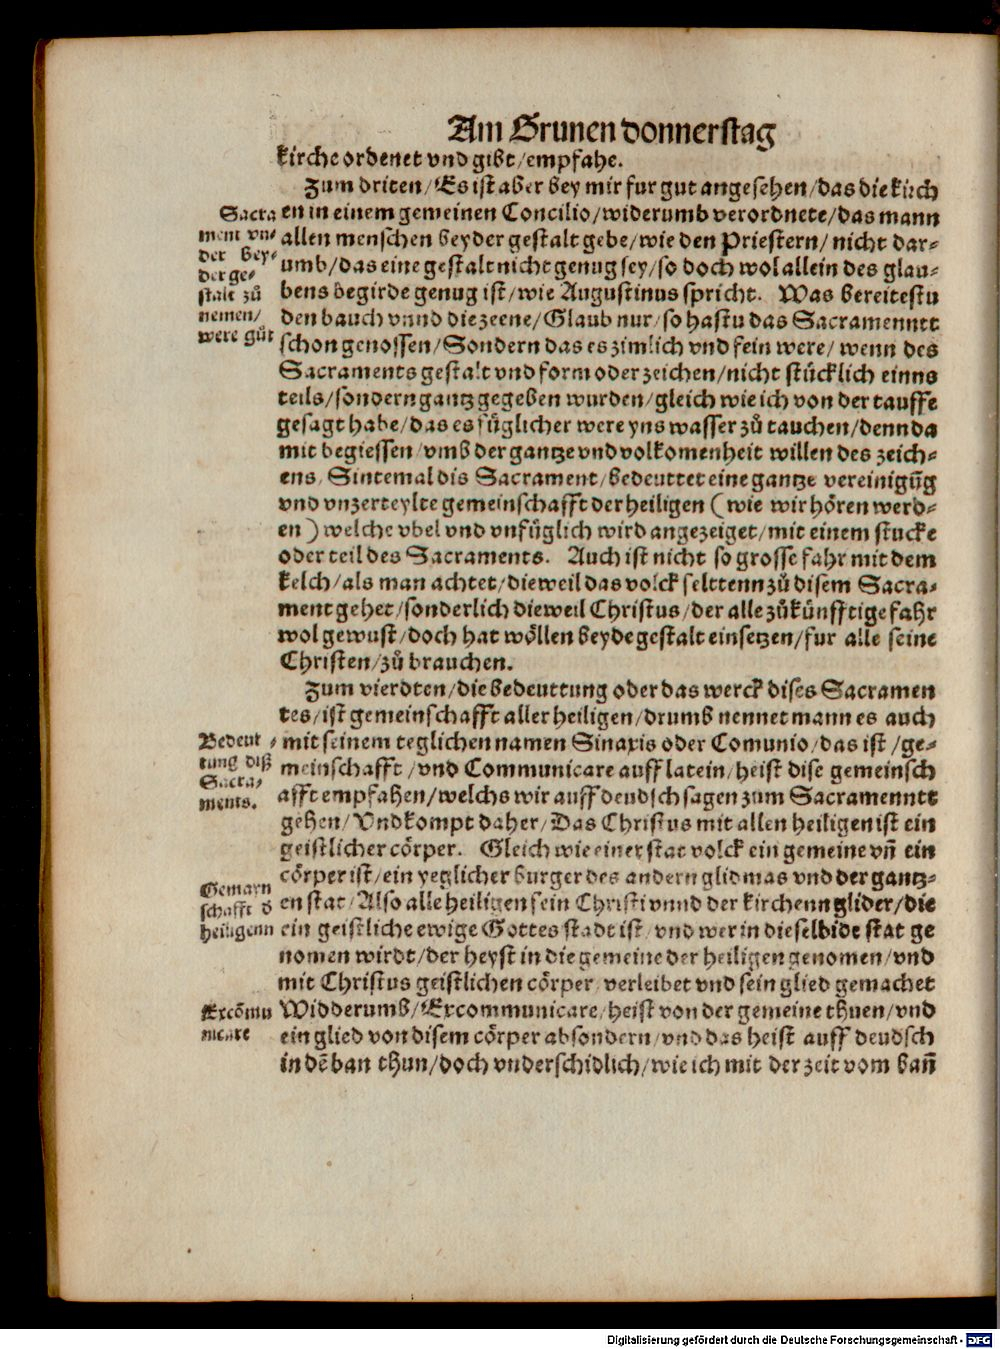 Am Grunen donnerstag
kirche ordenet vnd gibt/empfahe.
Zum driten/Es ist aber bey mir fur gut angesehen/das die kirch
en in einem gemeinen Concilio/widerumb verordnete/das mann
allen menschen beyder gestalt gebe/wie den Priestern/nicht dar⸗
umb/das eine gestalt nicht genug sey/so doch wol allein des glau⸗
bens begirde genug ist/wie Augustinus spricht. Was bereitestu
den bauch vnnd die zeene/Glaub nur/so hastu das Sacramenntt
schon genossen/Sondern das es zimlich vnd fein were/wenn des
Sacraments gestalt vnd form oder zeichen/nicht stücklich einns
teils/sondern gantz gegeben wurden/gleich wie ich von der tauffe
gesagt habe/das es fuͤglicher were yns wasser zuͦ tauchen/denn da
mit begiessen/vmb der gantze vnd volkomenheit willen des zeich⸗
ens/Sintemal dis Sacrament/bedeuttet eine gantze vereinigūg
vnd vnzerteylte gemeinschafft der heiligen (wie wir hoͤren werd⸗
en) welche vbel vnd vnfuͤglich wird angezeiget/mit einem stucke
oder teil des Sacraments. Auch ist nicht so grosse fahr mit dem
kelch/als man achtet/dieweil das volck selttenn zuͦ disem Sacra⸗
ment gehet/sonderlich dieweil Christus/der alle zuͦkuͤnfftige fahr
wol gewust/doch hat woͤllen beyde gestalt einsetzen/fur alle seine
Christen/zuͦ brauchen.
Zum vierdten/die bedeuttung oder das werck dises Sacramen
tes/ist gemeinschafft aller heiligen/drumb nennet mann es auch
mit seinem teglichen namen Sinaxis oder Comunio/das ist/ge⸗
meinschafft/vnd Communicare auff latein/heist dise gemeinsch
afft empfahen/welchs wir auff deudsch sagen zum Sacramenntt
gehen/Vnd kompt daher/Das Christus mit allen heiligen ist ein
geistlicher coͤrper. Gleich wie einer stat volck ein gemeine vñ ein
coͤrper ist/ein yeglicher burger des andern glidmas vnd der gantz⸗
en stat/Also alle heiligen sein Christi vnnd der kirchenn glider/die
ein geistliche ewige Gottes stadt ist/vnd wer in dieselbide stat ge
nomen wirdt/der heyst in die gemeine der heiligen genomen/vnd
mit Christus geistlichen coͤrper/verleibet vnd sein glied gemachet
Widderumb/Excommunicare/heist von der gemeine thuen/vnd
ein glied von disem coͤrper absondern/vnd das heist auff deudsch
in dē ban thun/doch vnderschidlich/wie ich mit der zeit vom bañ
Sacra
ment vn⸗
der bey⸗
der ge⸗
stalt zuͦ
nemen/
were guͦt
Bedeut⸗
tung diß
Sacra⸗
ments.
Gemayn
schafft d
heiligenn
Excōmu
nicare
Digitalisierung gefördert durch die Deutsche Forschungsgemeinschaft - DFG